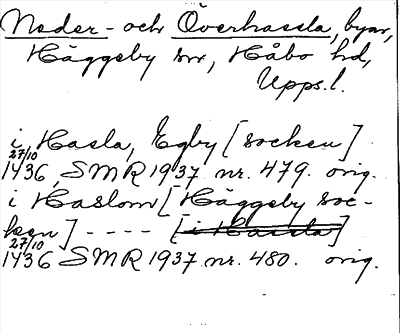 Neder- och Överhassla, byar,
Häggeby sn, Håbo hd,
Upps.l.
i Hasla, Egby [socken]
27/10
1436, SMR 1937 nr. 479. orig.
i Haslom [Häggeby soc-
ken] ---- [i Hassla]
27/10
1436 SMR 1937 nr. 480. orig.